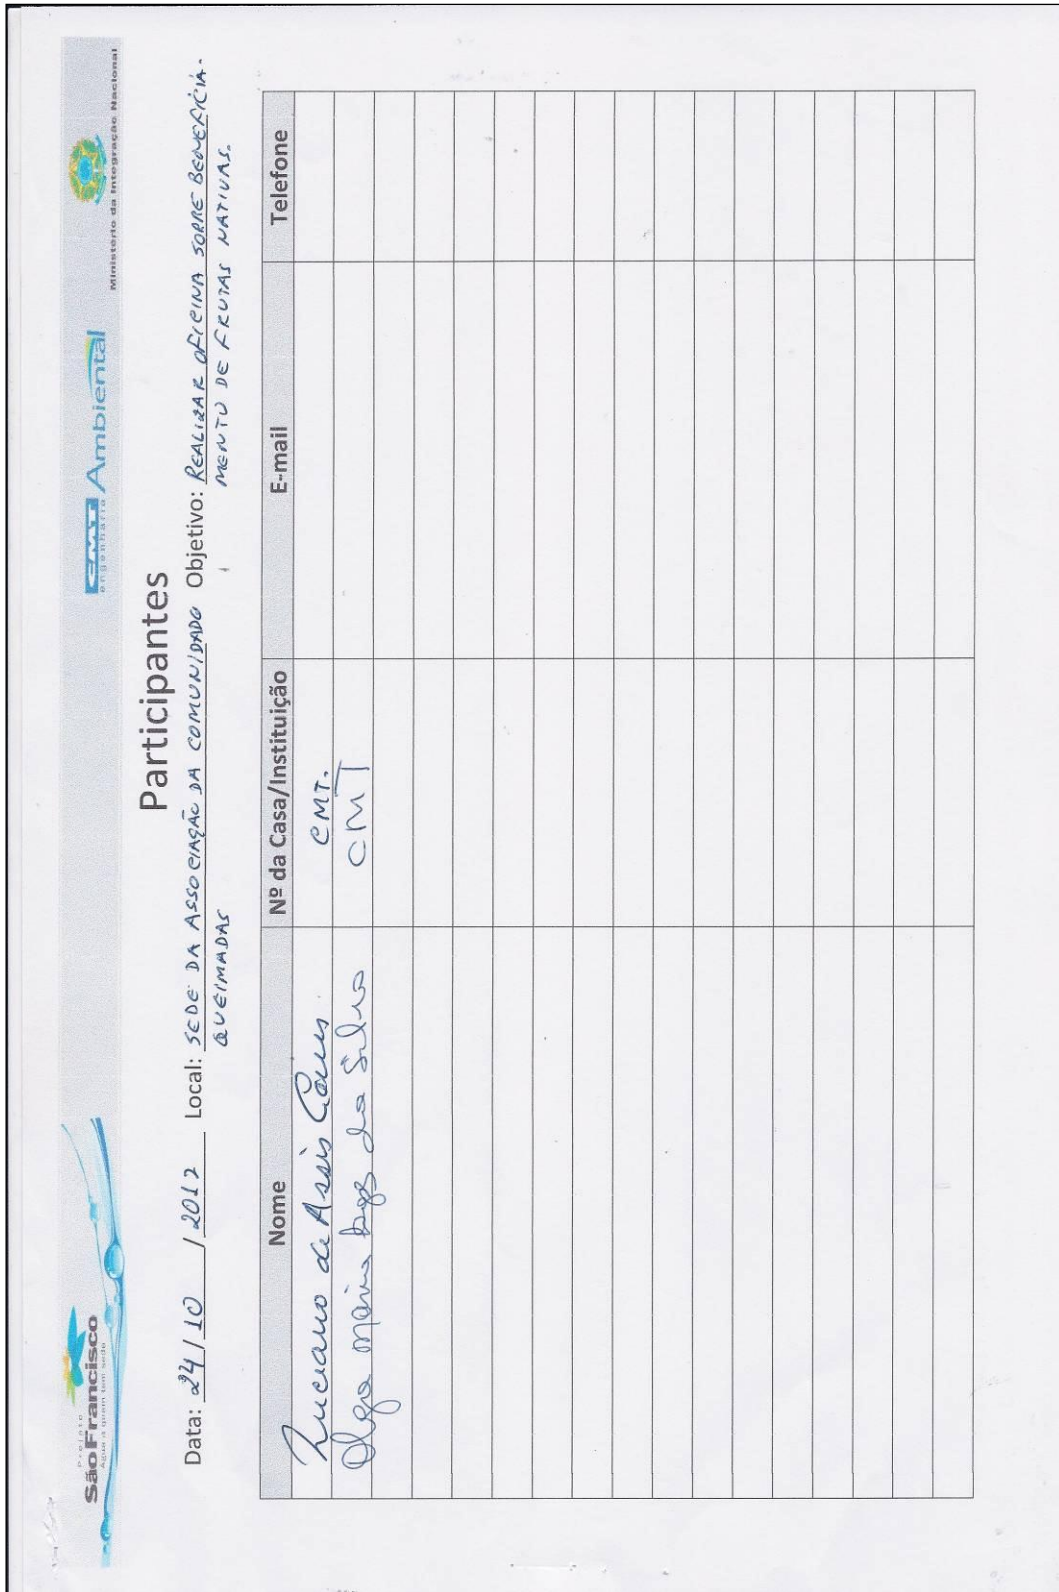 Projeto
São Francisco
Água a quem tem sede
CMT Ambiental
engenharia
Ministério da Integração Nacional
Participantes
Data: 24 / 10 / 2012 Local: SEDE DA ASSOCIAÇÃO DA COMUNIDADE Objetivo: REALIZAR OFICINA SOBRE BENEFICIA-
QUEIMADAS MENTO DE FRUTAS NATIVAS.
Nome Nº da Casa/Instituição E-mail Telefone
Luciano de Assis CMT.
Maria da Silva CMT